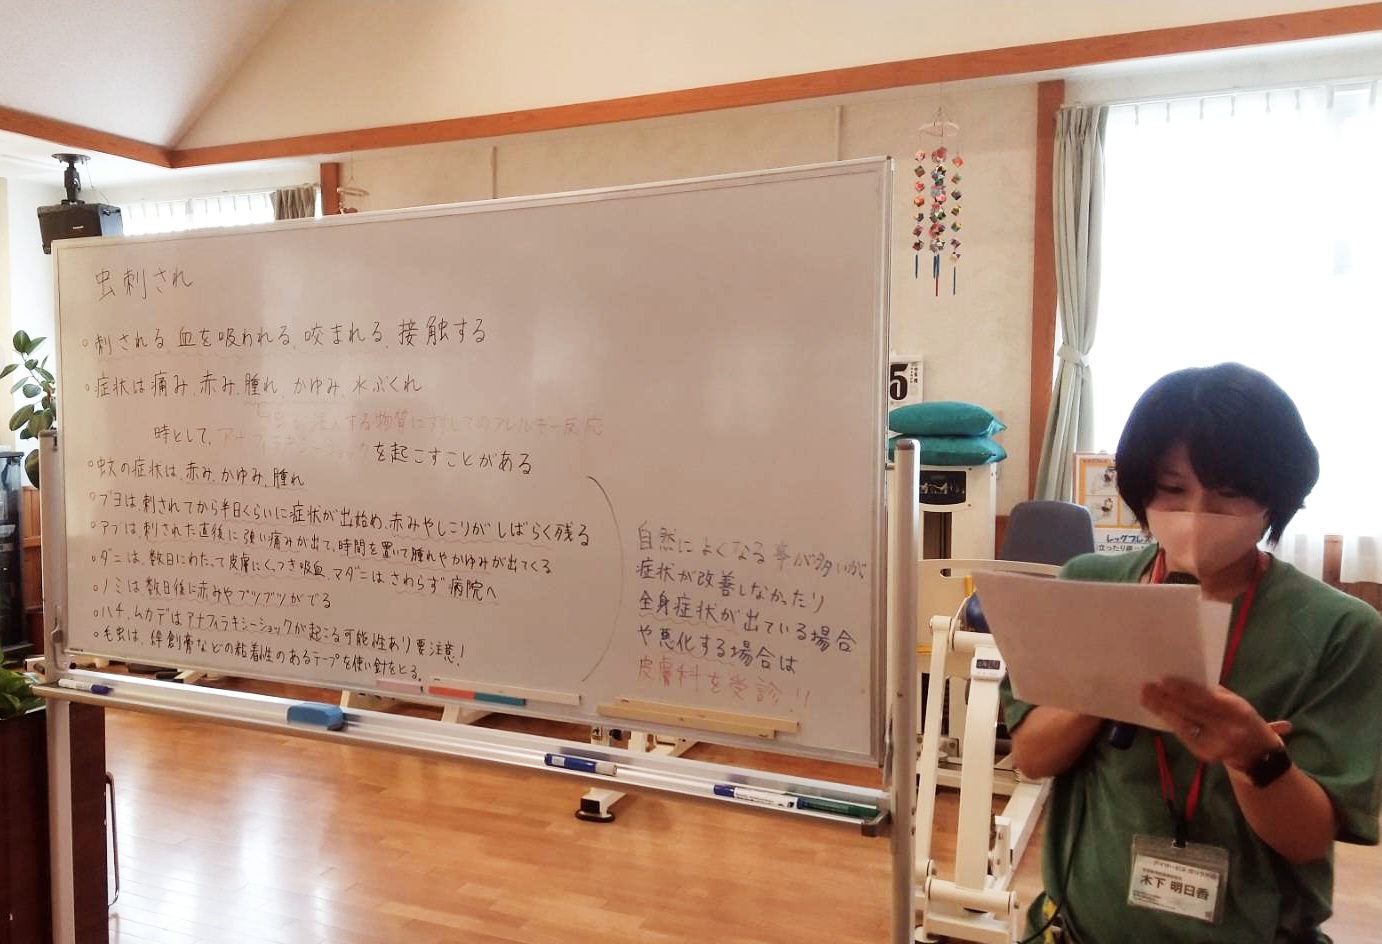 虫刺され
○刺される、血を吸われる、咬まれる、接触する
○症状は痛み、赤み、腫れ、かゆみ、水ぶくれ
注入する物質に対してのアレルギー反応
時として、アナフィラキシーショックを起こすことがある
○蚊の症状は、赤み、かゆみ、腫れ
○ブヨは、刺されてから半日くらいに症状が出始め、赤みやしこりがしばらく残る
○アブは、刺された直後に強い痛みが出て、時間を置いて腫れやかゆみが出てくる
○ダニは、数日にわたって皮膚にくっつき吸血、マダニはさわらず病院へ
○ノミは数日後に赤みやブツブツがでる
○ハチ、ムカデはアナフィラキシーショックが起こる可能性あり要注意!
○毛虫は、絆創膏などの粘着性のあるテープを使い針をとる。
自然によくなる事が多いが
症状が改善しなかったり
全身症状が出ている場合
や悪化する場合は
皮膚科を受診!!
5
レッグプレス
木下 明日香